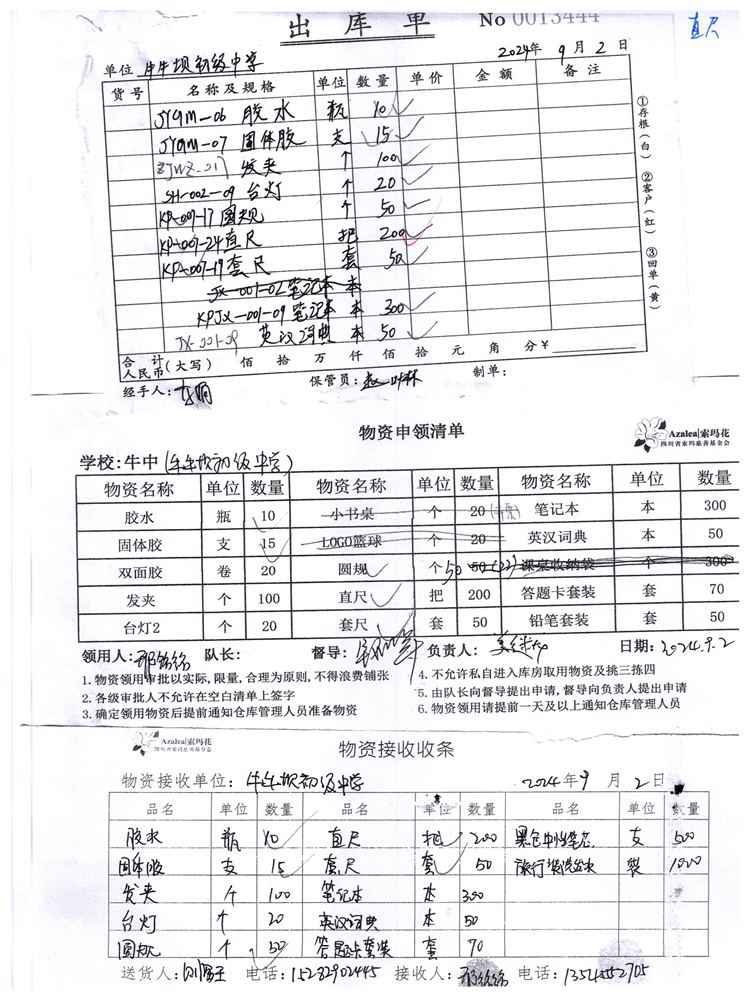 出库单 No 0013444
直尺
单位 牛牛坝初级中学 2024年 9月2日
货号 名称及规格 单位 数量 单价 金额 备注
JYGM-06 胶水 瓶 10
JYGM-07 固体胶 支 15
发夹 个 100
SH-002-09 台灯 个 20
KP-007-17 圆规 个 50
KP-007-24 直尺 把 200
KP-007-19 套尺 套 50
JX-001-02 笔记本 本
KPJX-001-09 笔记本 本 300
JX-001-09 英汉词典 本 50
合计
人民币(大写) 佰 拾 万 仟 佰 拾 元 角 分 ¥
经手人: 保管员: 制单:
①存根(白) ②客户(红) ③回单(黄)
物资申领清单
Azalea|索玛花
四川省索玛慈善基金会
学校:牛中(牛牛坝初级中学)
物资名称 单位 数量 物资名称 单位 数量 物资名称 单位 数量
胶水 瓶 10 小书桌 个 20 笔记本 本 300
固体胶 支 15 LOGO篮球 个 20 英汉词典 本 50
双面胶 卷 20 圆规 个 50 50 课桌收纳袋 个 300
发夹 个 100 直尺 把 200 答题卡套装 套 70
台灯2 个 20 套尺 套 50 铅笔套装 套 50
领用人: 队长: 督导: 负责人: 日期: 2024.9.2
1. 物资领用审批以实际, 限量, 合理为原则, 不得浪费铺张 4. 不允许私自进入库房取用物资及挑三拣四
2. 各级审批人不允许在空白清单上签字 5. 由队长向督导提出申请, 督导向负责人提出申请
3. 确定领用物资后提前通知仓库管理人员准备物资 6. 物资领用请提前一天及以上通知仓库管理人员
Azalea|索玛花
四川省索玛慈善基金会
物资接收收条
物资接收单位: 牛牛坝初级中学 2024年9月2日
品名 单位 数量 品名 单位 数量 品名 单位 数量
胶水 瓶 10 直尺 把 200 黑色中性笔芯 支 500
固体胶 支 15 套尺 套 50 旅行装洗发水 袋 1000
发夹 个 100 笔记本 本 300
台灯 个 20 英汉词典 本 50
圆规 个 50 答题卡套装 套 70
送货人: 电话: 15282902445 接收人: 电话: 13541552705